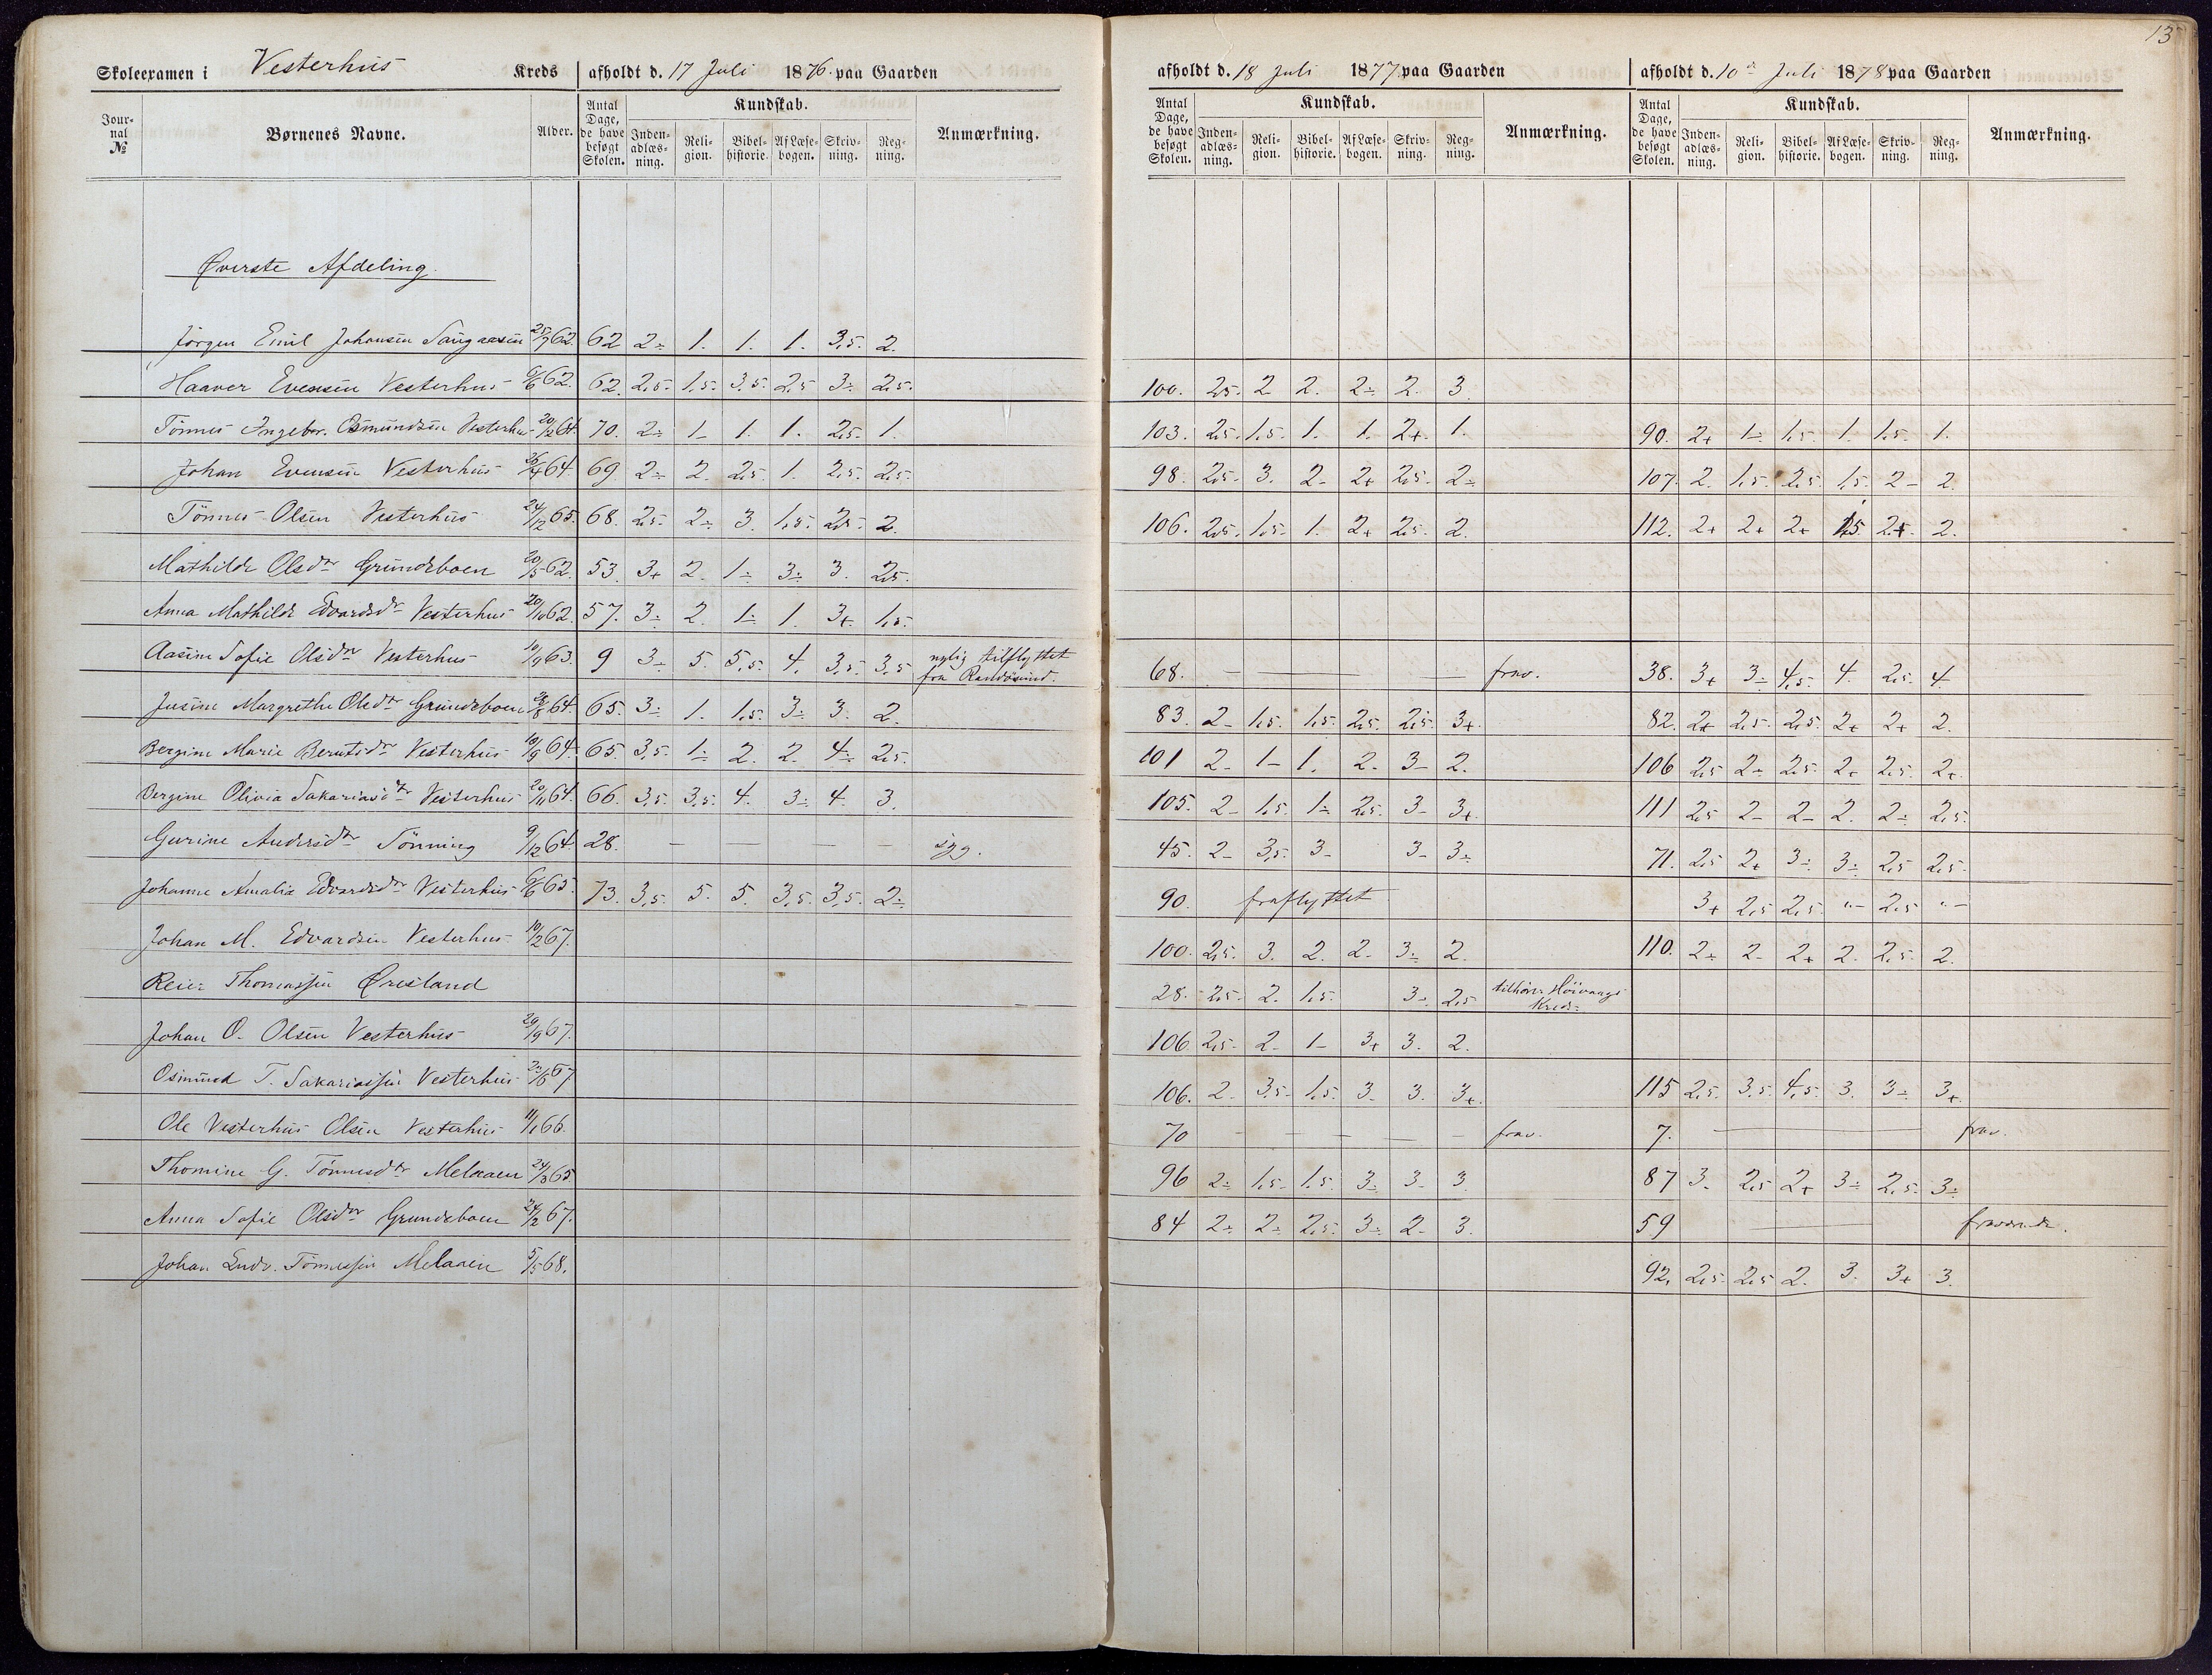 13
Skoleexamen i Vesterhus Kreds afholdt d. 17 Juli 1876 paa Gaarden
afholdt d. 18 Juli 1877 paa Gaarden
afholdt d. 10de Juli 1878 paa Gaarden
Jour-nal № Børnenes Navne. Alder. Antal Dage, de have besøgt Skolen. Kundskab. Inden-adlæs-ning. Reli-gion. Bibel-historie. Af Læse-bogen. Skriv-ning. Reg-ning. Anmærkning.
Antal Dage, de have besøgt Skolen. Kundskab. Inden-adlæs-ning. Reli-gion. Bibel-historie. Af Læse-bogen. Skriv-ning. Reg-ning. Anmærkning.
Antal Dage, de have besøgt Skolen. Kundskab. Inden-adlæs-ning. Reli-gion. Bibel-historie. Af Læse-bogen. Skriv-ning. Reg-ning. Anmærkning.
Øverste Afdeling.
Jörgen Emil Johansen 25/7 62. 62 2÷ 1. 1. 1. 3,5. 2.
Haaver Evensen Vesterhus 6/6 62. 62. 2,5. 1,5. 3,5. 2,5 3÷ 2,5. 100. 2,5. 2 2. 2÷ 2. 3.
Tönnes Ingebr. Osmundsen Vesterhus 20/12 64. 70. 2÷ 1- 1. 1. 2,5. 1. 103. 2,5. 1,5. 1. 1. 2+ 1. 90. 2+ 1÷ 1,5. 1. 1,5. 1.
Johan Evensen Vesterhus 26/4 64. 69. 2÷ 2. 2,5. 1. 2,5. 2,5. 98. 2,5. 3. 2- 2+ 2,5. 2÷ 107. 2. 1,5. 2,5. 1,5. 2- 2.
Tönnes Olsen Vesterhus 24/12 65. 68. 2,5. 2÷ 3. 1,5. 2,5. 2. 106. 2,5. 1,5. 1. 2+ 2,5. 2. 112. 2+ 2+ 2+ 1,5 2+. 2.
Mathilde Olsdtr Grundeboen 20/5 62. 53. 3+ 2. 1÷ 3÷ 3. 2,5.
Anna Mathilde Edvardsdtr Vesterhus 20/10 62. 57. 3÷ 2. 1÷ 1. 3+ 1,5.
Aasine Sofie Olsdtr Vesterhus 10/9 63. 9 3÷ 5. 5,5. 4. 3,5. 3,5 nylig tilflyttet fra Randösund. 68. — — — — — — frav. 38. 3+ 3÷ 4,5. 4. 2,5. 4.
Jusine Margrethe Olsdtr Grundeboen 64. 65. 3÷ 1. 1,5. 3÷ 3. 2. 83. 2- 1,5. 1,5. 2,5. 2,5. 3+. 82. 2+ 2,5. 2,5 2+ 2+ 2.
Bergine Marie Berntsdtr Vesterhus 10/9 64. 65. 3,5. 1÷ 2. 2. 4÷ 2,5. 101 2- 1- 1. 2. 3- 2. 106 2,5 2÷ 2,5. 2+ 2,5. 2+.
Bergine Olivia Sakariasdtr Vesterhus 20/11 64. 66. 3,5. 3,5. 4. 3÷ 4. 3. 105. 2- 1,5. 1÷ 2,5. 3- 3+. 111 2,5 2- 2- 2. 2÷ 2,5.
Gurine Andersdtr Tönning 9/12 64. 28. — — — — syg. 45. 2- 3,5. 3- 3- 3÷ 71. 2,5 2+ 3÷ 3÷ 2,5 2,5.
Johanne Amalia Edvardsdtr Vesterhus 6/6 65. 73. 3,5. 5. 5. 3,5. 3,5. 2÷ 90. fraflyttet. 3+ 2,5 2,5. "- 2,5 "-
Johan M. Edvardsen Vesterhus 10/2 67. 100. 2,5. 3. 2. 2- 3÷ 2. 110. 2÷ 2- 2+ 2. 2,5. 2.
Reier Thomassen Øresland 28. 2,5. 2. 1,5. 3÷ 2,5 tilhörer Höivaags Kreds.
Johan O. Olsen Vesterhus 20/9 67. 106. 2,5. 2- 1- 3+ 3. 2.
Osmund T. Sakariassen Vesterhus 23/6 67. 106. 2. 3,5- 1,5. 3. 3. 3+. 115 2,5. 3,5. 4,5. 3. 3÷ 3+
Ole Vesterhus Olsen Vesterhus 11/1 66. 70 — — — — — — frav. 7. — frav.
Thomine G. Tönnesdtr Melaaen 24/3 65. 96 2÷ 1,5- 1,5. 3÷ 3- 3. 87 3. 2,5 2+ 3÷ 2,5. 3÷
Anna Sofie Olsdtr Grundeboen 24/2 67. 84 2÷ 2÷ 2,5. 3÷ 2- 3. 59 — fraværende.
Johan Ludv. Tönnessen Melaaen 5/5 68. 92. 2,5. 2,5 2. 3. 3+ 3.